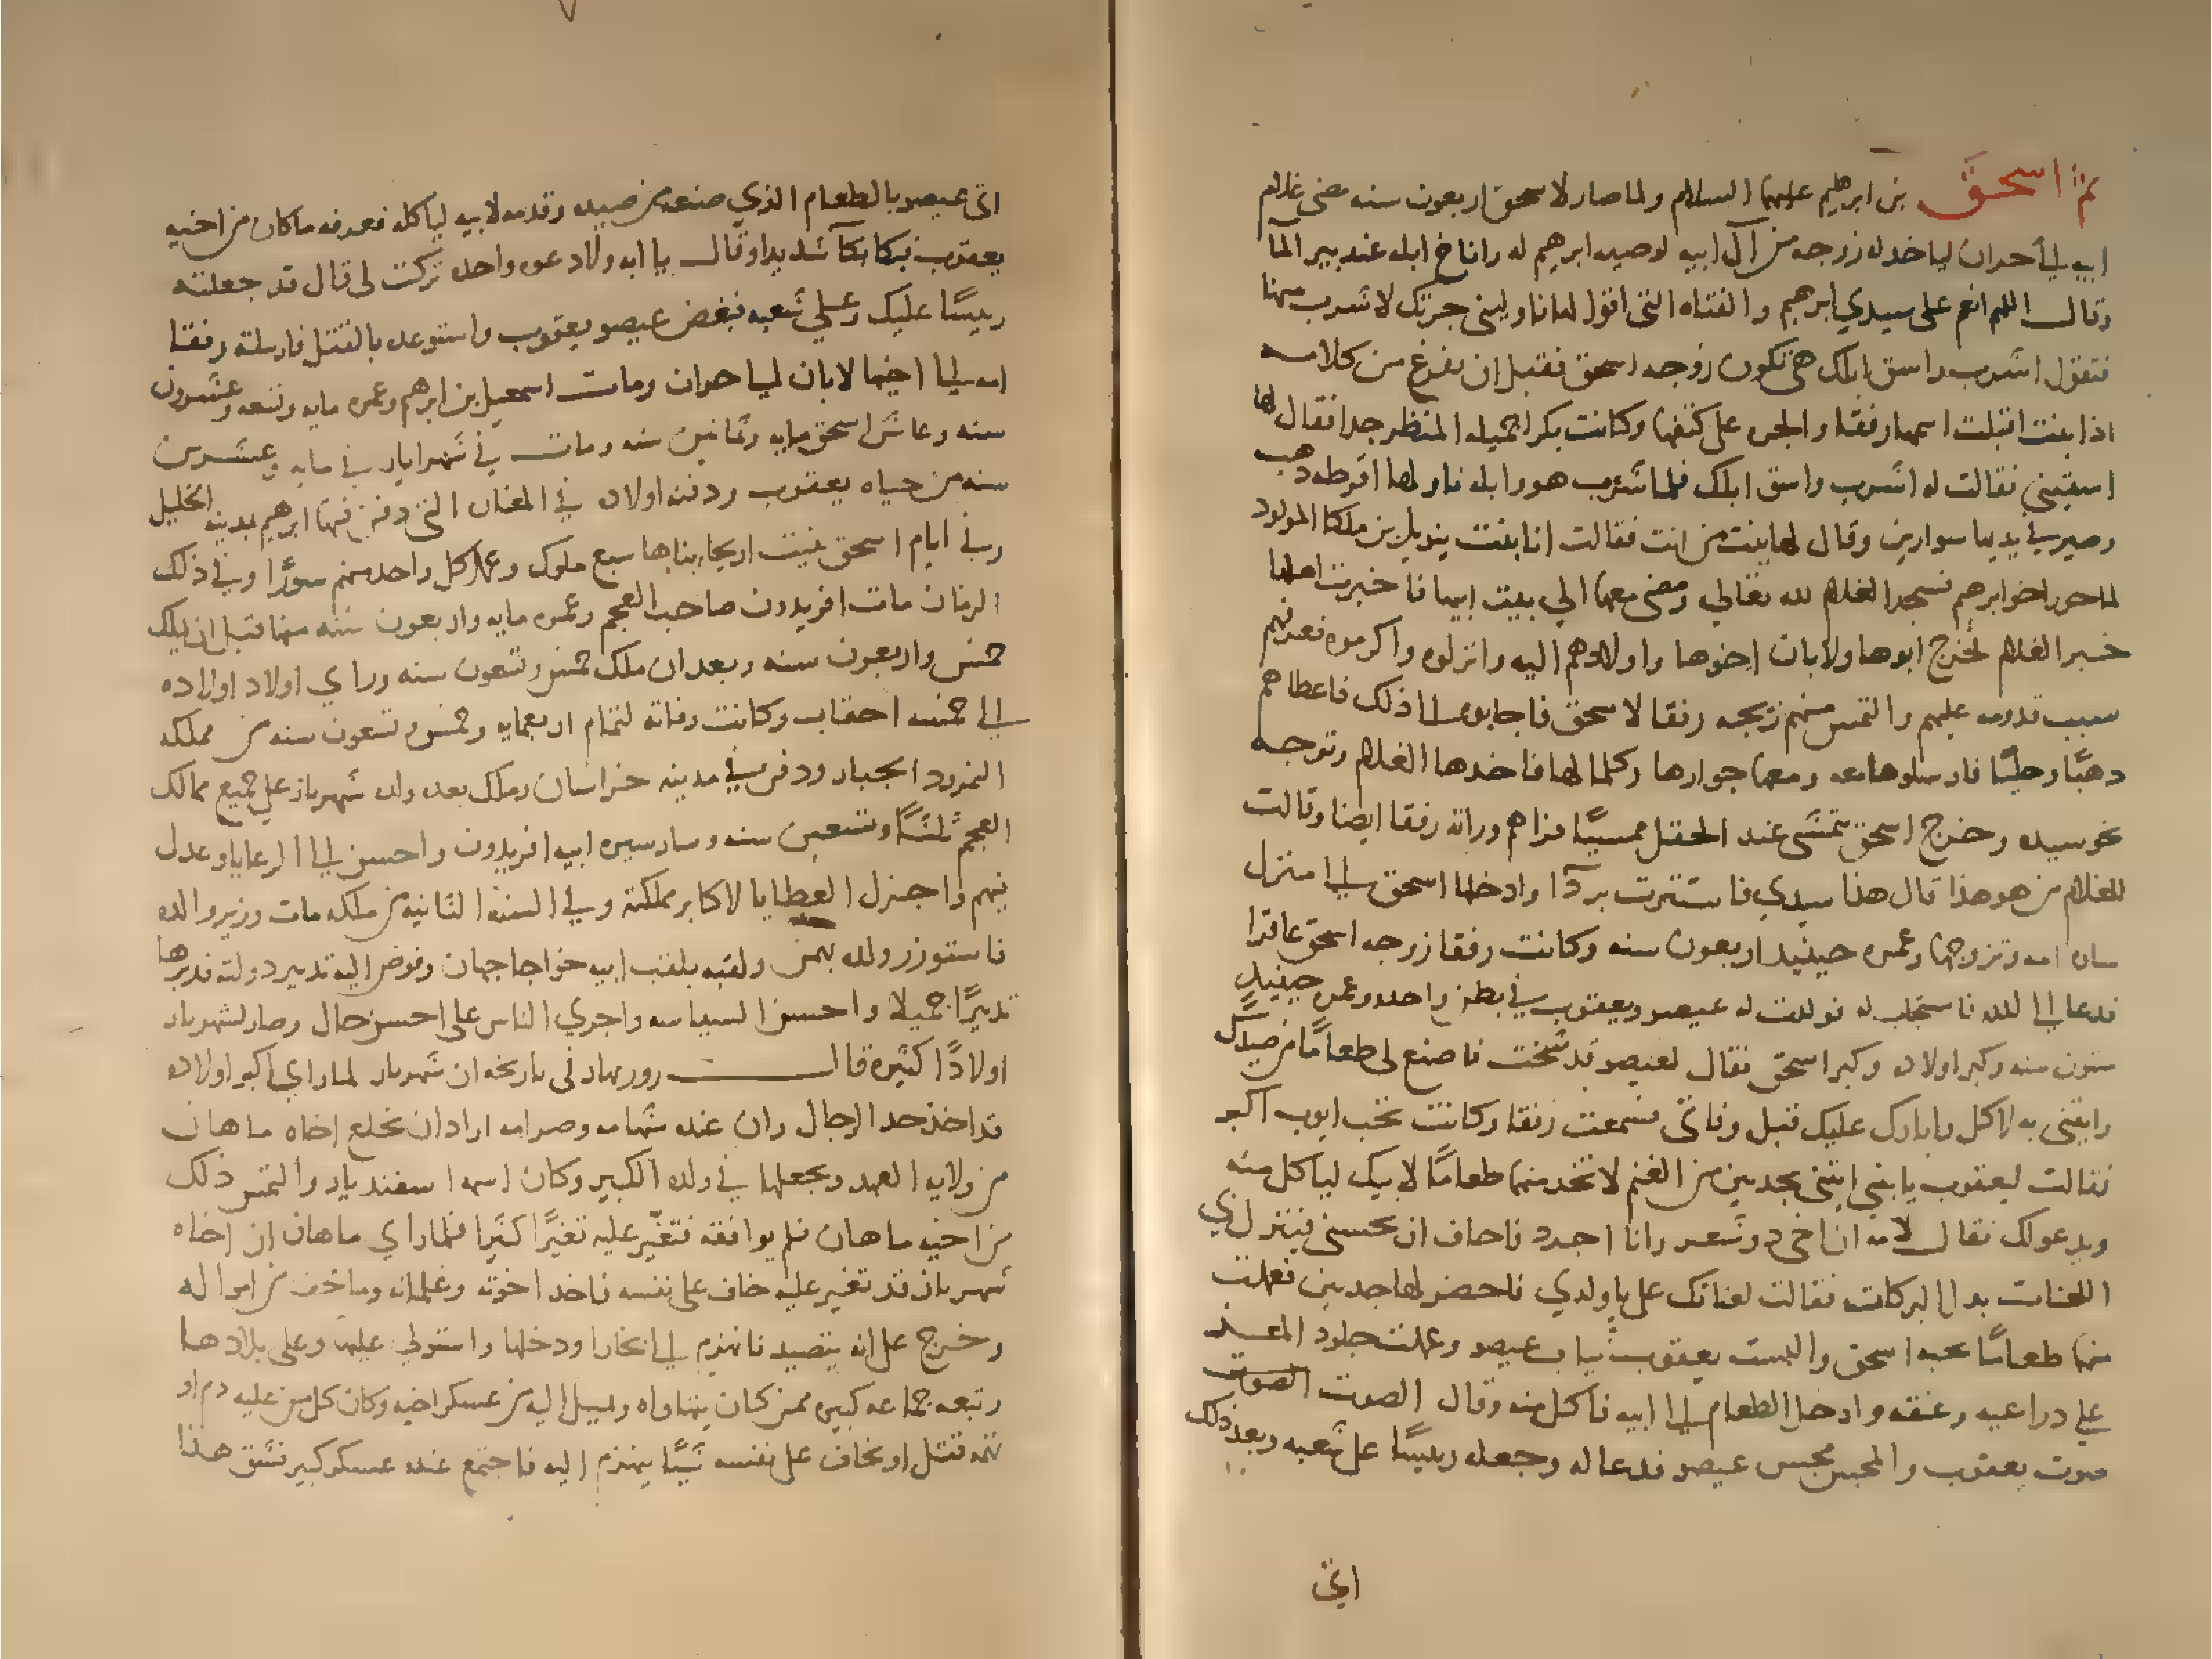 ثم اسحق بن ابرهيم عليهما السلام ولما صار لاسحق اربعون سنه مضى غلام
ابيه الي أحران لياخد له زوجه من آل ابيه لوصيه ابرهيم له واناخ ابله عند بير المآ
وقال اللهم انعم على سيدي ابرهيم والفتاه التي اقول لها ناوليني جرتك لاشرب منها
فتقول اشرب واسق ابلك هي تكون زوجه اسحق فقبل ان يفرغ من كلامه
اذا بنت اقبلت اسمها رفقا والجره على كتفها وكانت بكرا جميله المنظر جدا فقال لها
اسقيني فقالت له اشرب واسق ابلك فلما شرب هو وابله ناولها اقرطه دهب
وصير في يديها سوارين وقال لها بنت من انت فقالت انا بنت بتويل بن ملكا المولود
لناحور اخو ابرهيم فسجد الغلام لله تعالي ومضى معها الي بيت ابيها فاخبرت اهلها
خبر الغلام فخرج ابوها ولابان اخوها واولادهم اليه وانزلوه واكرموه فعرفهم
سبب قدومه عليهم والتمس منهم تزيجه رفقا لاسحق فاجابوه الى ذلك فاعطاهم
دهبًا وحليًا فارسلوها معه ومعها جوارها وكلما لها فاخدها الغلام وتوجه
نحو سيده وخرج اسحق يتمشى عند الحقل ممسيًا فراهم وراته رفقا ايضا وقالت
للغلام من هو هذا قال هذا سيدي فاستترت بردآ وادخلها اسحق الى منزل
ساره امه وتزوجها وعمره حينيد اربعون سنه وكانت رفقا زوجه اسحق عاقرا
فدعا الى الله فاستجاب له فولدت له عيصو ويعقوب في بطن واحد وعمره حينيد
ستون سنه وكبر اولاده وكبر اسحق فقال لعيصو قد شخت فاصنع لى طعامًا من صيدك
وايتنى به لاكل وابارك عليك قبل وفاتى فسمعت رفقا وكانت تحب ايوب اكبر
فقالت ليعقوب يا بني ايتنى بجديين من الغنم لاتخد منهما طعامًا لابيك لياكل منه
ويدعو لك فقال لامه ان اخى دو شعر وانا اجرد فاخاف ان يحسنى فينزل بي
اللعنات بدل البركات فقالت لعناتك على يا ولدي فاحضر لها جديين فعملت
منهما طعامًا يحبه اسحق والبست يعقوب ثياب عيصو وعملت جلود المعز
على دراعيه وعنقه وادخل الطعام الى ابيه فاكل منه وقال الصوت الصوت
صوت يعقوب والمجس مجس عيصو فدعا له وجعله رييسًا على شعبه وبعد ذلك
اتى
اتى عيصو بالطعام الذي صنعه من صيده وقدمه لابيه لياكله فعرفه ما كان من اخيه
يعقوب فبكا بكآ شديدا وقال يا ابه ولا دعوه واحده تركت لى قال قد جعلته
رييسًا عليك وعلي شعبه فبغض عيصو يعقوب واستوعده بالقتل فارسلته رفقا
امه الى اخيها لابان الى حران ومات اسمعيل بن ابرهيم وعمره مايه وتسعه وعشرون
سنه وعاش اسحق مايه وثمانين سنه ومات في شهر ايار في مايه وعشرين
سنه من حياه يعقوب ودفنه اولاده في المغاره التي دفن فيها ابرهيم بمدينه الخليل
وفي ايام اسحق بنيت اريحا بناها سبع ملوك وعمل كل واحد منهم سورًا وفي ذلك
الزمان مات افريدون صاحب العجم وعمره مايه واربعون سنه منها قبل ان يملك
خمس واربعون سنه وبعد ان ملك خمس وتسعون سنه وراي اولاد اولاده
الى خمسه احقاب وكانت وفاته لتمام اربعمايه وخمس وتسعون سنه من مملكه
النمرود الجبار ودفن في مدينه خراسان وملك بعده ولده شهرباز على جميع ممالك
العجم ثلثًا وتسعين سنه وسار سيره ابيه افريدون واحسن الى الرعايا وعدل
فيهم واجزل العطايا لاكابر مملكته وفي السنه الثانيه من ملكه مات وزير والده
فاستوزر ولده بهمن ولقبه بلقب ابيه خواجا جهان وفوض اليه تدبير دولته فدبرها
تدبيرًا جميلا واحسن السياسه واجري الناس على احسن حال وصار لشهرباز
اولادًا كثيره قال روزبهار فى تاريخه ان شهرباز لما راي اكبر اولاده
قد اخذ حد الرجال وان عنده شهامه وصرامه اراد ان يخلع اخاه ماهان
من ولايه العهد ويجعلها في ولده الكبير وكان اسمه اسفندباد والتمس ذلك
من اخيه ماهان فلم يوافقه فتغيّر عليه تغيرًا كثيرا فلما راي ماهان ان اخاه
شهرباز قد تغير عليه خاف على نفسه فاخد اخوته وغلمانه وما خف من امواله
وخرج على انه يتصيد فانهزم الى بخارا ودخلها واستولي عليها وعلى بلادها
وتبعه جماعه كبيره ممن كان يتهاواه ويميل اليه من عسكر اخيه وكان كل من عليه دم او
تهمه قتل او يخاف على نفسه شيًا ينهزم اليه فاجتمع عنده عسكر كبير فشق هذا